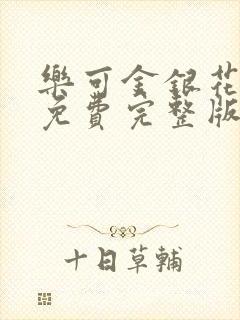 樂可金銀花
免費完整版
十日草輔